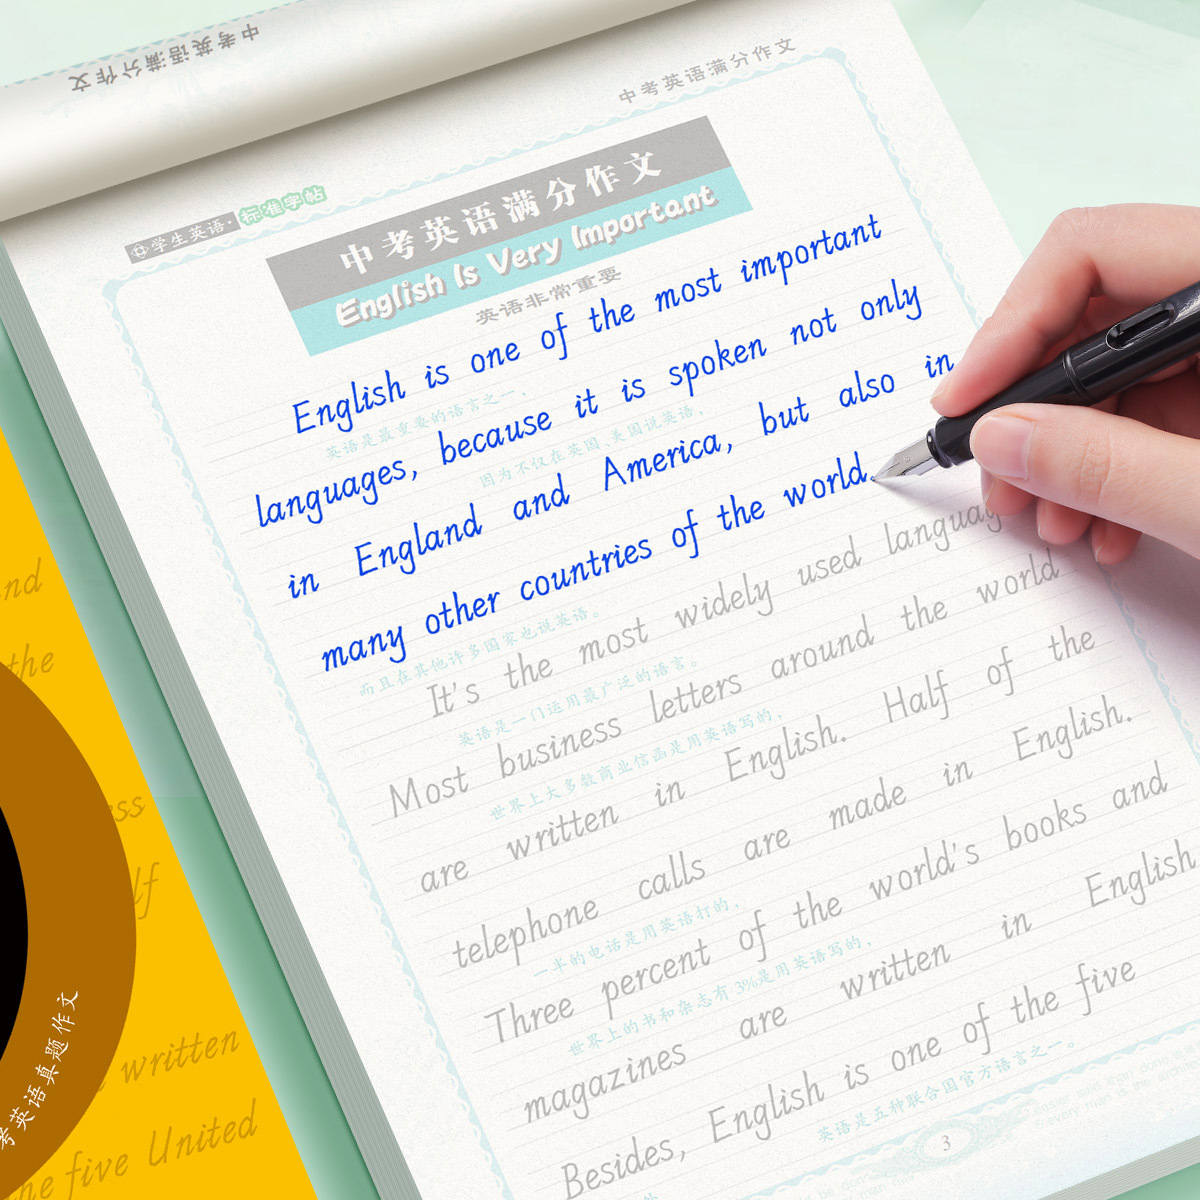 中考英语满分作文
中考英语满分作文
学生英语·标准字帖
中考英语满分作文
English Is Very Important
英语非常重要
English is one of the most important
英语是最重要的语言之一，
languages, because it is spoken not only
因为不仅在英国、美国说英语，
in England and America, but also in
many other countries of the world.
而且在其他许多国家也说英语。
It's the most widely used
英语是一门运用最广泛的语言。
Most business letters around the world
世界上大多数商业信函是用英语写的，
are written in English. Half of the
telephone calls are made in English.
一半的电话是用英语打的，
Three percent of the world's books and
世界上的书和杂志有3%是用英语写的，
magazines are written in English
Besides, English is one of the five
英语是五种联合国官方语言之一。
3
the
written
five United
考英语真题作文